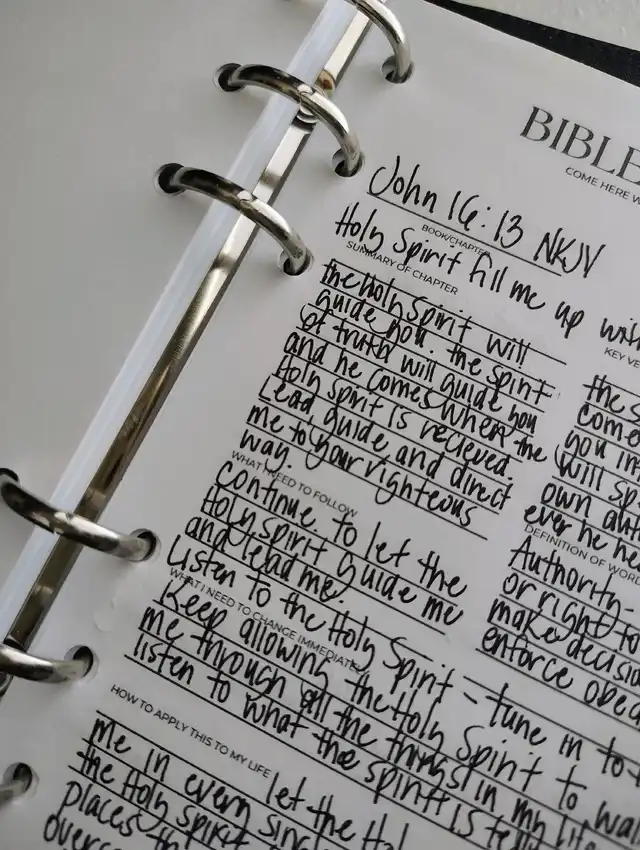 BIBLE
COME HERE W
John 16:13 NKJV
BOOK/CHAPTER
Holy Spirit fill me up with
SUMMARY OF CHAPTER
the Holy Spirit will
guide you. the Spirit
of truth will guide you
and he comes when the
Holy Spirit is recieved.
Lead, guide, and direct
me to your righteous
way.
WHAT I NEED TO FOLLOW
Continue to let the
Holy Spirit guide me
and lead me.
Listen to the Holy Spirit - tune in to
WHAT I NEED TO CHANGE IMMEDIATELY
Keep allowing the Holy Spirit to wal
me through all the things in my life
listen to what the spirit is tell
HOW TO APPLY THIS TO MY LIFE
let the Hol
me in every singl
the Holy Spirit
places th
overc
KEY VE
the S
come
you in
will sp
own auth
ever he he
DEFINITION OF WORD
Authority-
or right to
make decisio
enforce obed